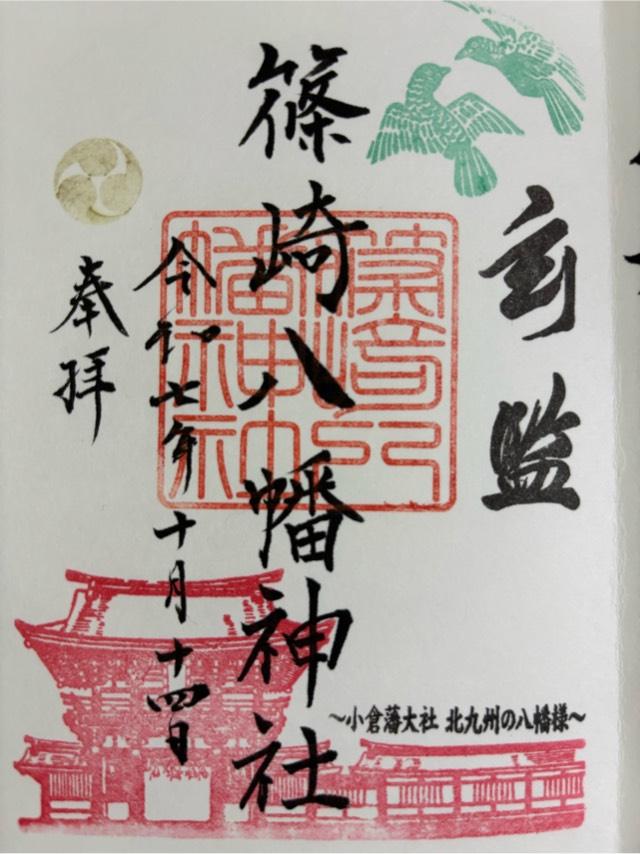 玄監
篠崎八幡神社
令和七年十月十四日
奉拝
～小倉藩大社 北九州の八幡様～